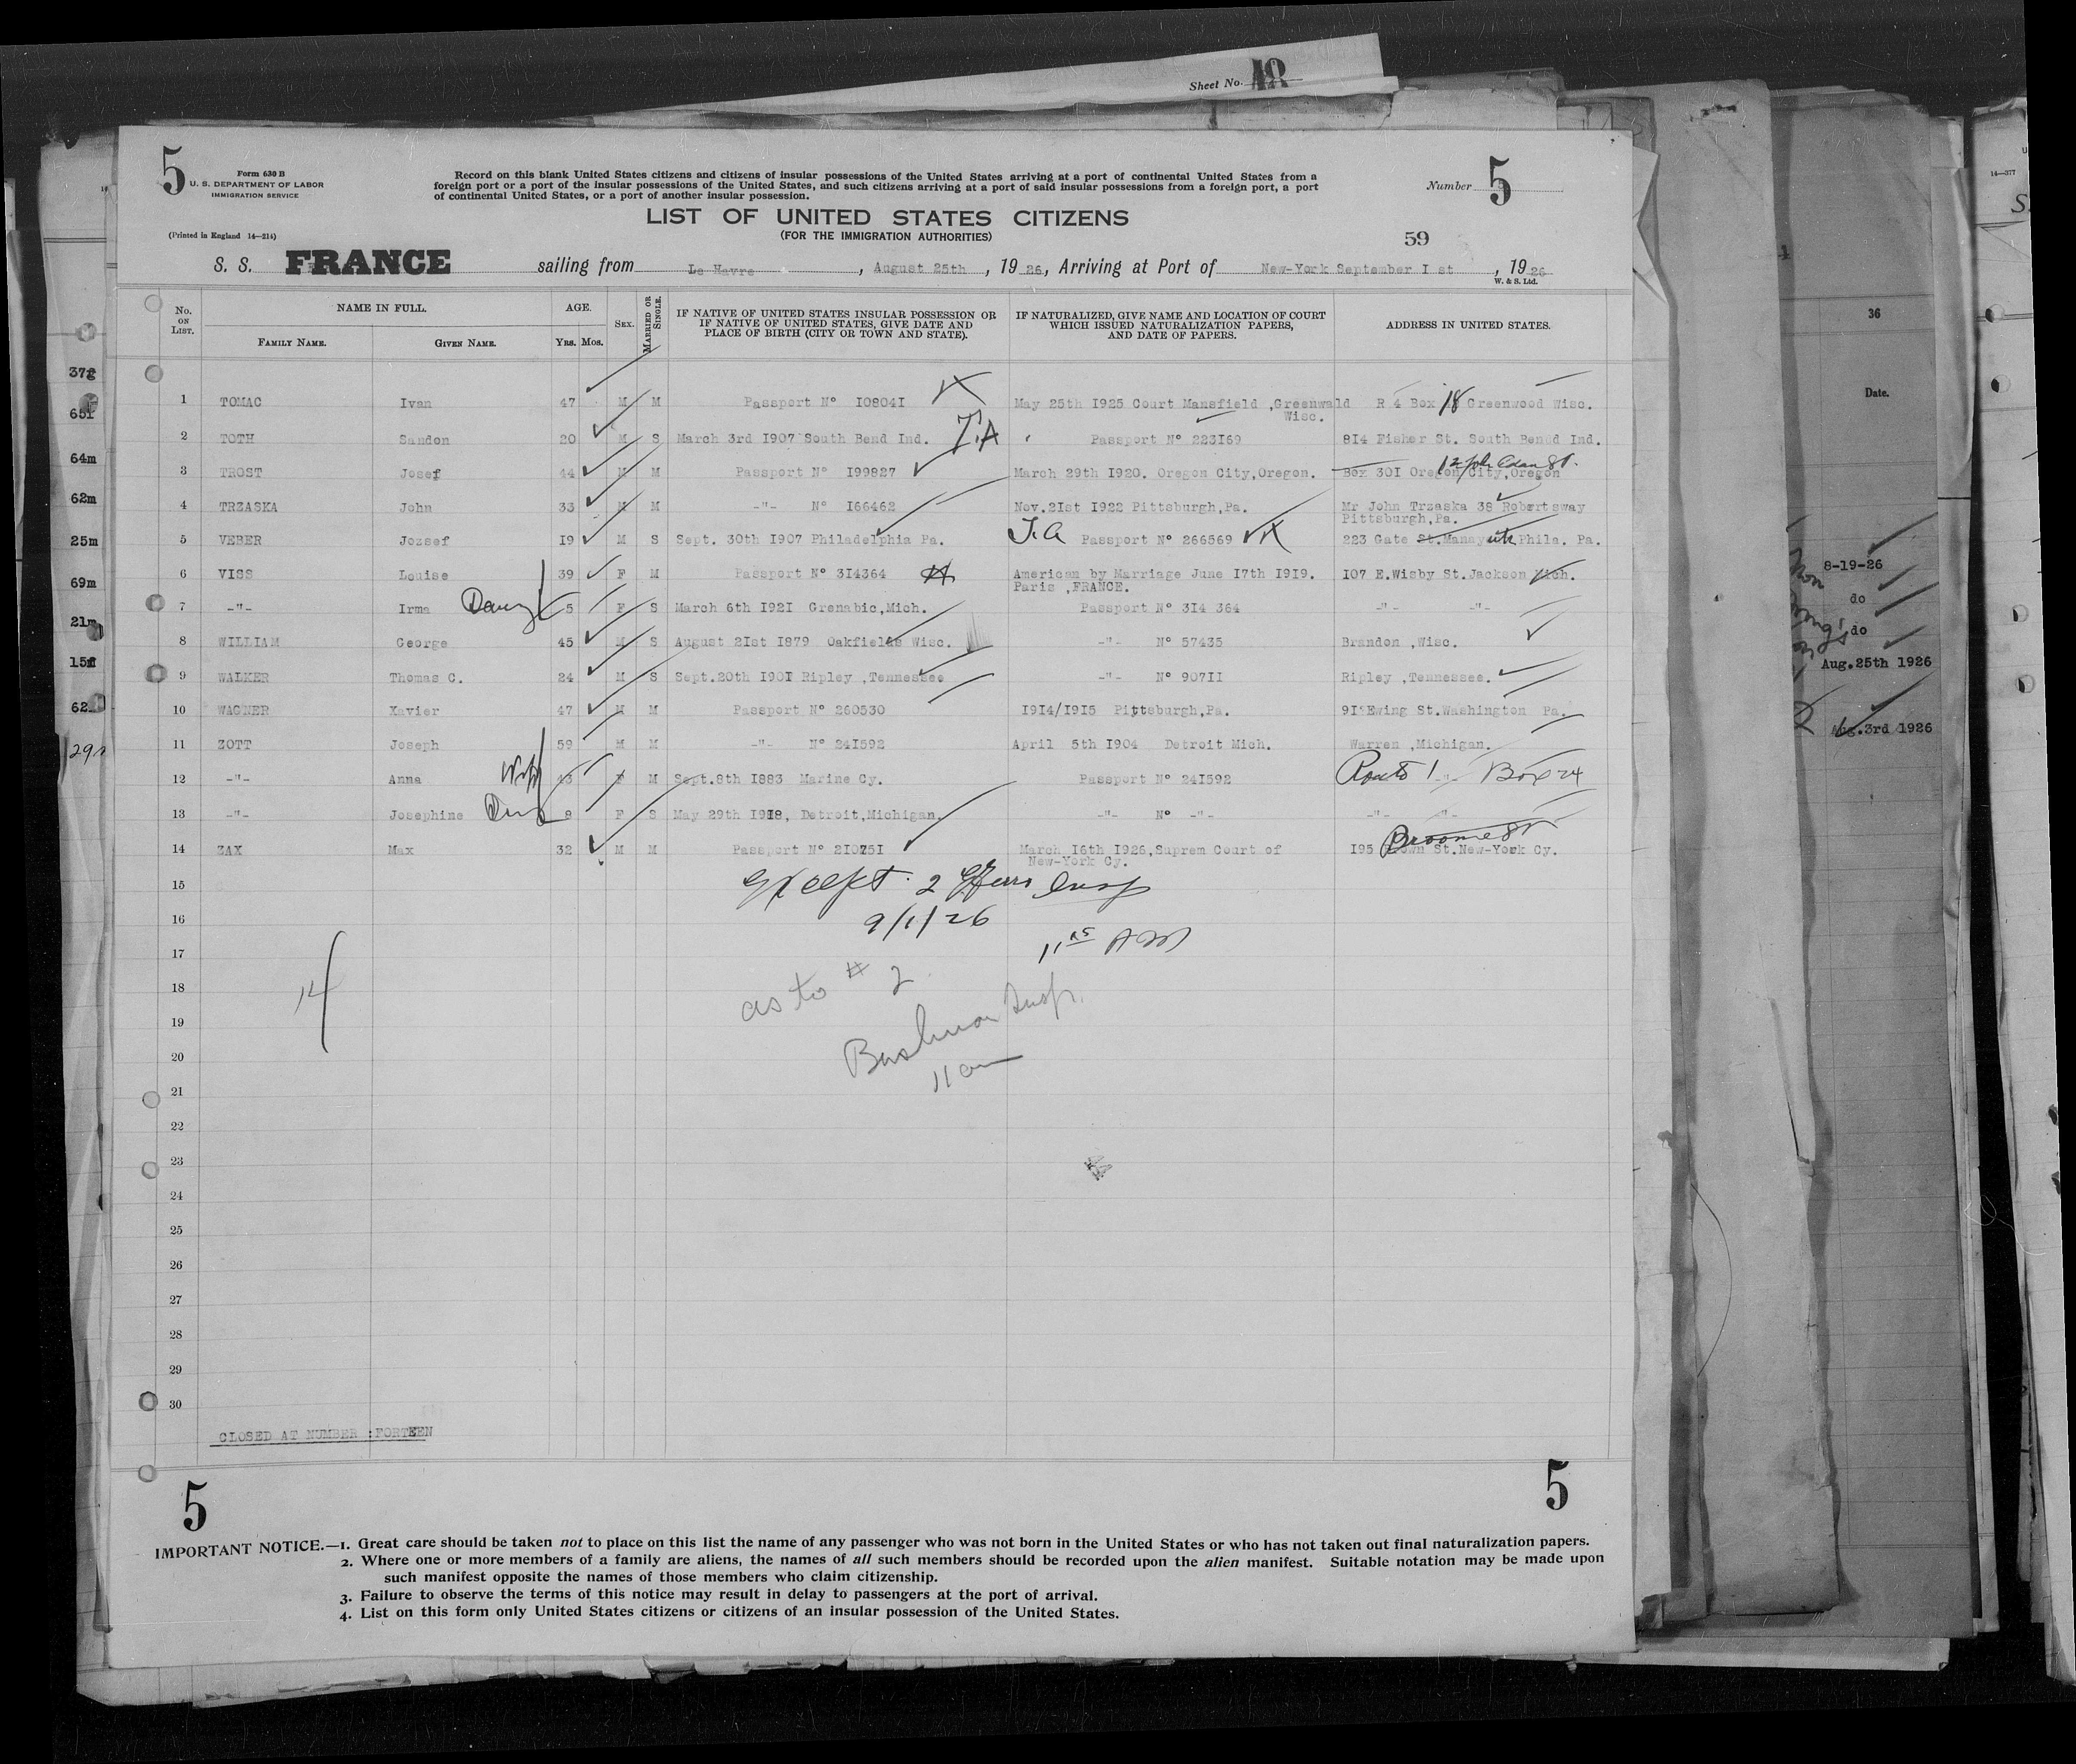 Sheet No. 18
5
Form 630 B
U. S. DEPARTMENT OF LABOR
IMMIGRATION SERVICE
(Printed in England 14—214)
Record on this blank United States citizens and citizens of insular possessions of the United States arriving at a port of continental United States from a
foreign port or a port of the insular possessions of the United States, and such citizens arriving at a port of said insular possessions from a foreign port, a port
of continental United States, or a port of another insular possession.
Number 5
LIST OF UNITED STATES CITIZENS
(FOR THE IMMIGRATION AUTHORITIES)
59
S. S. FRANCE sailing from Le Havre, August 25th, 1926, Arriving at Port of New-York September I st, 1926
W. & S. Ltd.
No. ON LIST. NAME IN FULL. FAMILY NAME. GIVEN NAME. AGE. YRS. MOS. SEX. MARRIED OR SINGLE. IF NATIVE OF UNITED STATES INSULAR POSSESSION OR IF NATIVE OF UNITED STATES, GIVE DATE AND PLACE OF BIRTH (CITY OR TOWN AND STATE). IF NATURALIZED, GIVE NAME AND LOCATION OF COURT WHICH ISSUED NATURALIZATION PAPERS, AND DATE OF PAPERS. ADDRESS IN UNITED STATES.
1 TOMAC Ivan 47 M M Passport N° I0804I May 25th I925 Court Mansfield ,Greenwald R 4 Box 18 Greenwood Wisc.
Wisc.
2 TOTH Sandon 20 M S March 3rd I907 South Bend Ind. T.A Passport N° 223I69 8I4 Fisher St. South Benud Ind.
3 TROST Josef 44 M M Passport N° I99827 March 29th I920. Oregon City,Oregon. Box 30I Oregon City,Oregon
4 TRZASKA John 33 M M -"- N° I66462 Nov.2Ist I922 Pittsburgh,Pa. Mr John Trzaska 38 Robertsway
Pittsburgh,Pa.
5 VEBER Jozsef I9 M S Sept. 30th I907 Philadelphia Pa. T.A Passport N° 266569 223 Gate St.Manayunk Phila. Pa.
6 VISS Louise 39 F M Passport N° 3I4364 American by Marriage June I7th I9I9. I07 E.Wisby St.Jackson Mich.
Paris ,FRANCE.
7 -"- Irma 5 F S March 6th I92I Grenabic,Mich. Passport N° 3I4 364 -"- -"-
8 WILLIAM George 45 M S August 2Ist I879 Oakfields Wisc. -"- N° 57435 Brandon ,Wisc.
9 WALKER Thomas C. 24 M S Sept.20th I90I Ripley ,Tennessee -"- N° 907II Ripley ,Tennessee.
10 WAGNER Xavier 47 M M Passport N° 260530 I9I4/I9I5 Pittsburgh,Pa. 9I Ewing St.Washington Pa.
11 ZOTT Joseph 59 M M -"- N° 24I592 April 5th I904 Detroit Mich. Warren ,Michigan.
12 -"- Anna Wife 43 F M Sept.8th I883 Marine Cy. Passport N° 24I592 Route 1 -"- Box 24
13 -"- Josephine 8 F S May 29th I9I8, Detroit,Michigan. -"- N° -"- -"- -"-
14 ZAX Max 32 M M Passport N° 2I075I March I6th I926,Suprem Court of I95 Broome St St.New-York Cy.
New-York Cy.
15 Except 2 Insp
16 9/1/26
17 AM
18 as to # 2
14
19 Insp.
20
11 am
21
22
23
24
25
26
27
28
29
30
CLOSED AT NUMBER :FORTEEN
5
5
IMPORTANT NOTICE.—1. Great care should be taken not to place on this list the name of any passenger who was not born in the United States or who has not taken out final naturalization papers.
2. Where one or more members of a family are aliens, the names of all such members should be recorded upon the alien manifest. Suitable notation may be made upon
such manifest opposite the names of those members who claim citizenship.
3. Failure to observe the terms of this notice may result in delay to passengers at the port of arrival.
4. List on this form only United States citizens or citizens of an insular possession of the United States.
64m
62m
25m
69m
21m
36
Date.
8-19-26
do
do
Aug.25th 1926
Aug.3rd 1926
14—377